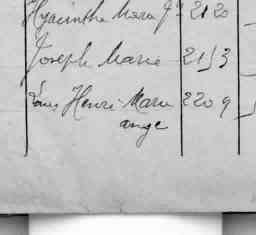 Hyacinthe Marie Jh 2120
Joseph Marie 2153
Louis Henri-Marie 2209
ange